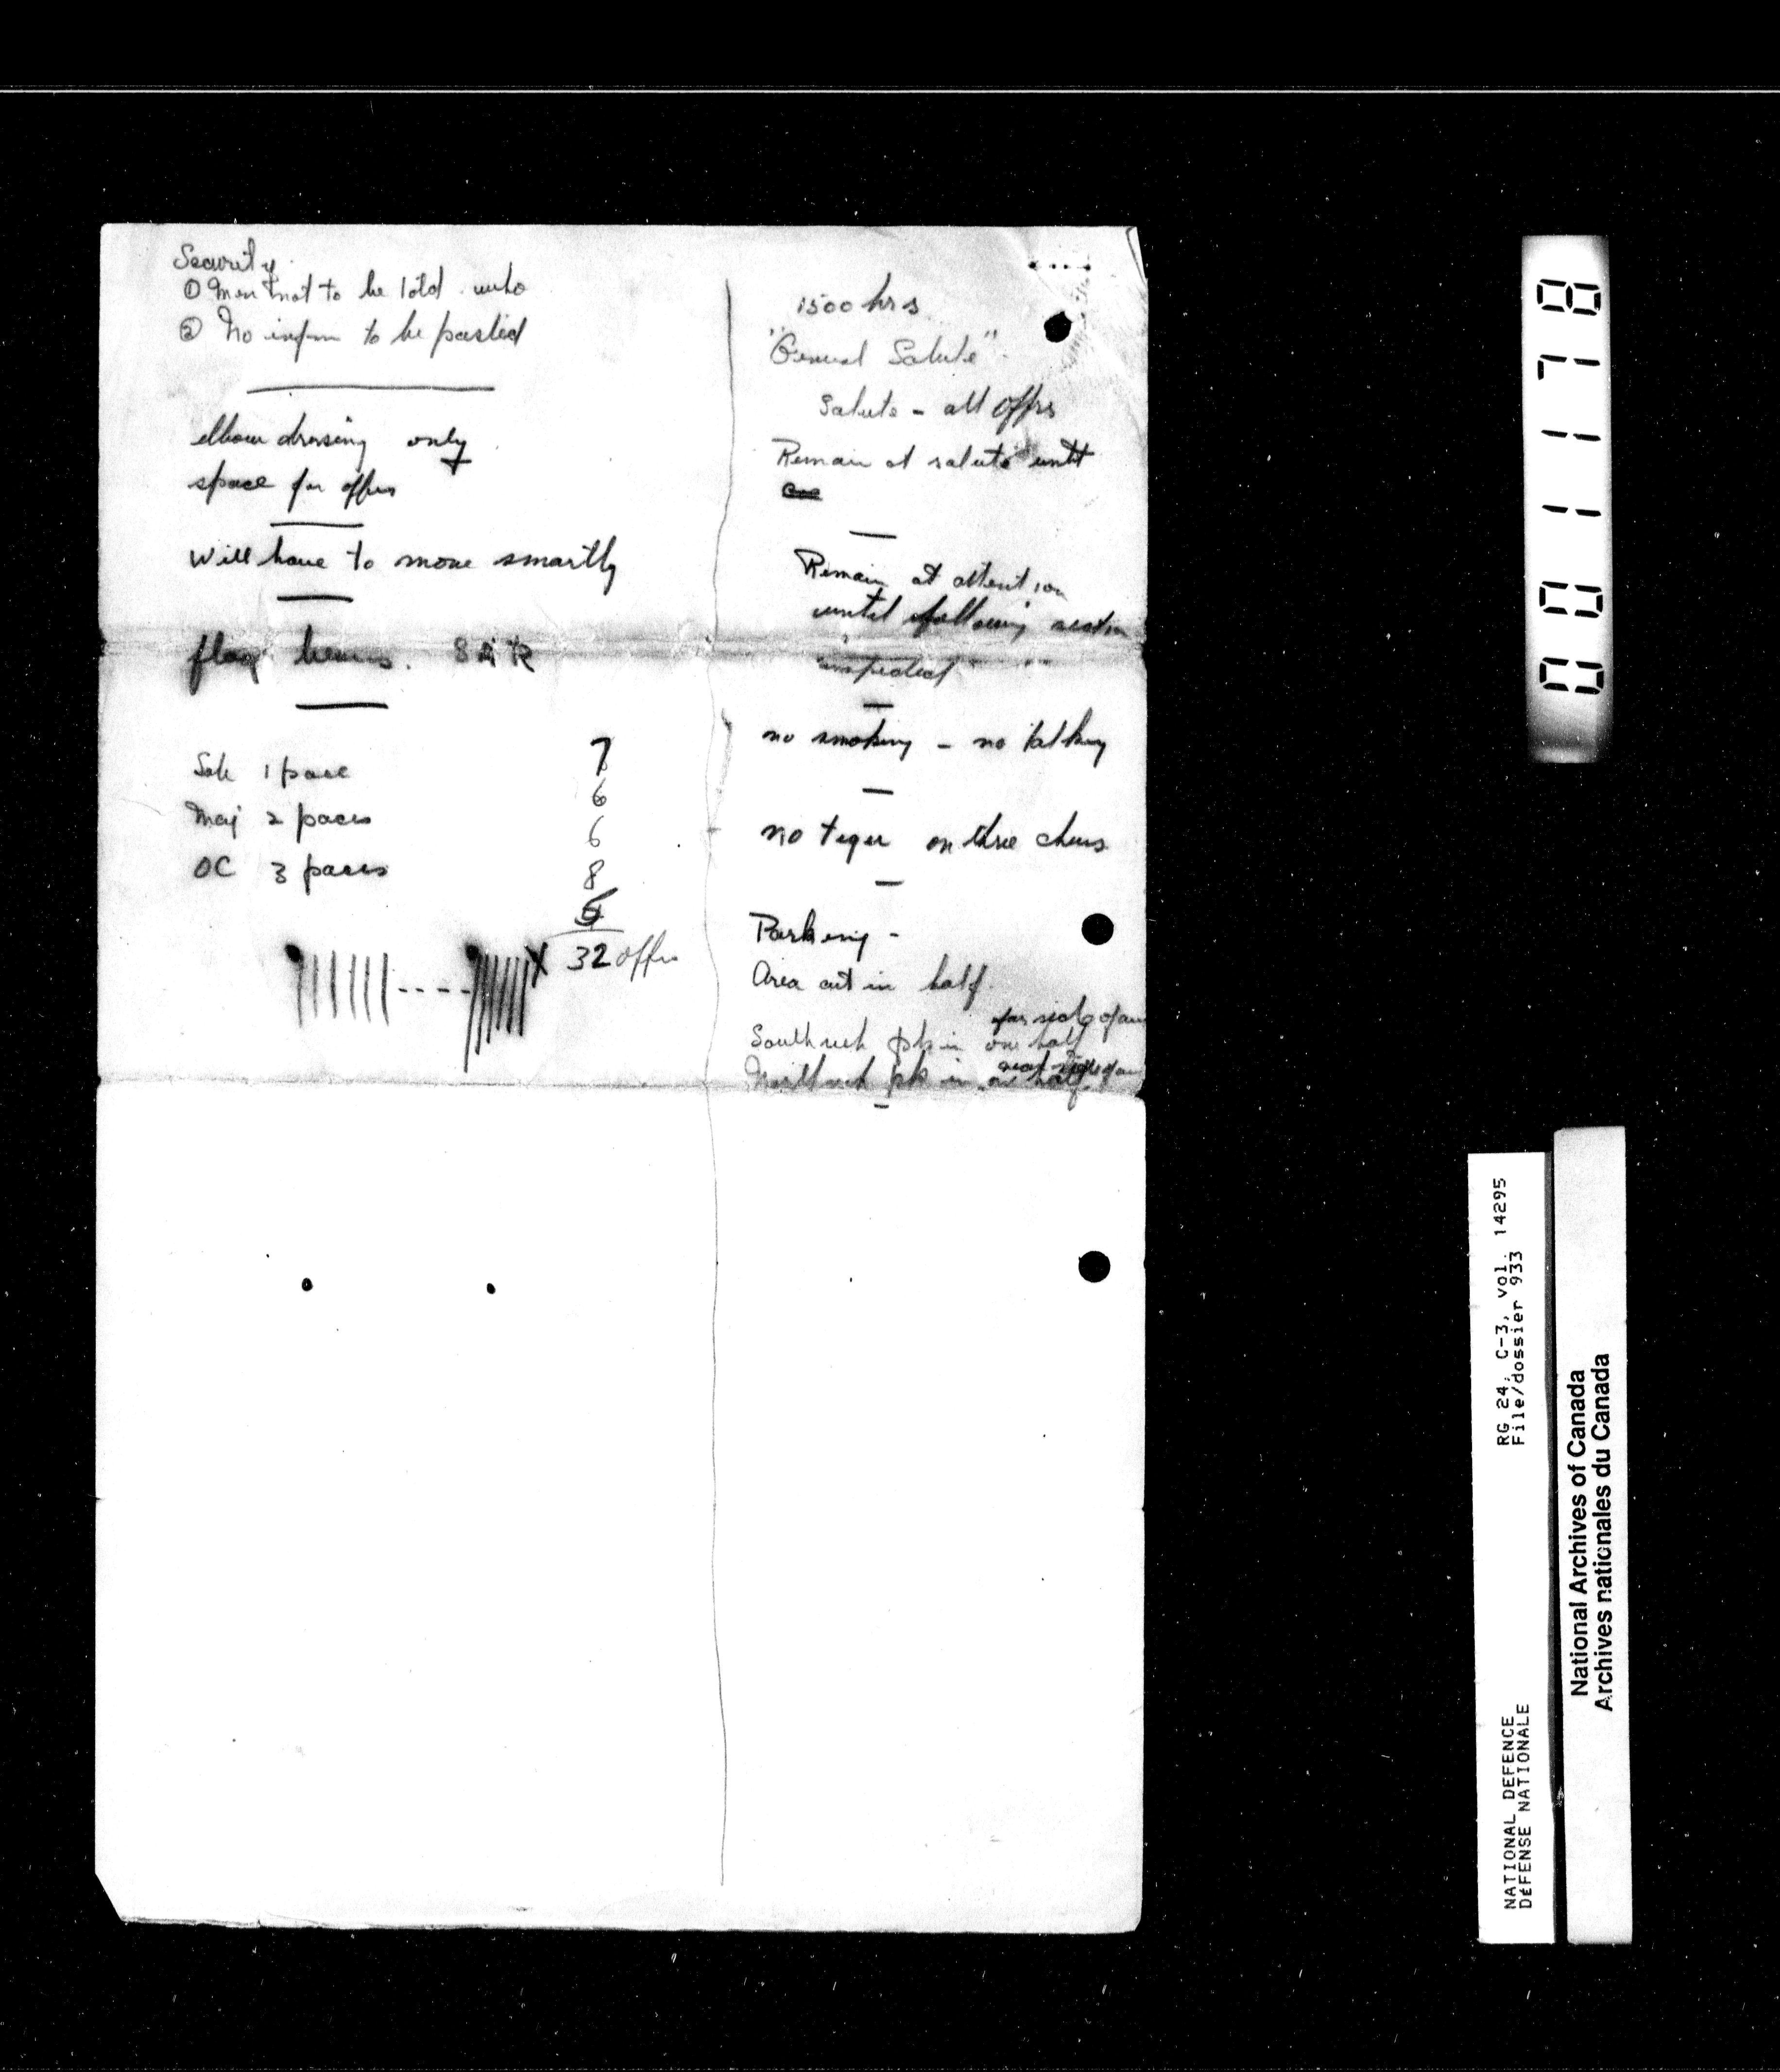 Security
① Men not to be told who
② No infm to be passed
elbow dressing only
space for offrs
Will have to move smartly
flag bearers. SAR
Sub 1 pace
Maj 2 paces
OC 3 paces
7
6
6
8
5
32 offrs
1500 hrs
"General Salute"
Salute - all offrs
Remain at salute until
Remain at attention
until following section
inspected
no smoking - no talking
no tiger on three cheers
Parking -
Area cut in half.
far side of
South veh pk in one half
near side of
North veh pk in one half
0011178
RG 24, C-3, vol. 14295
File/dossier 933
NATIONAL DEFENCE
DÉFENSE NATIONALE
National Archives of Canada
Archives nationales du Canada